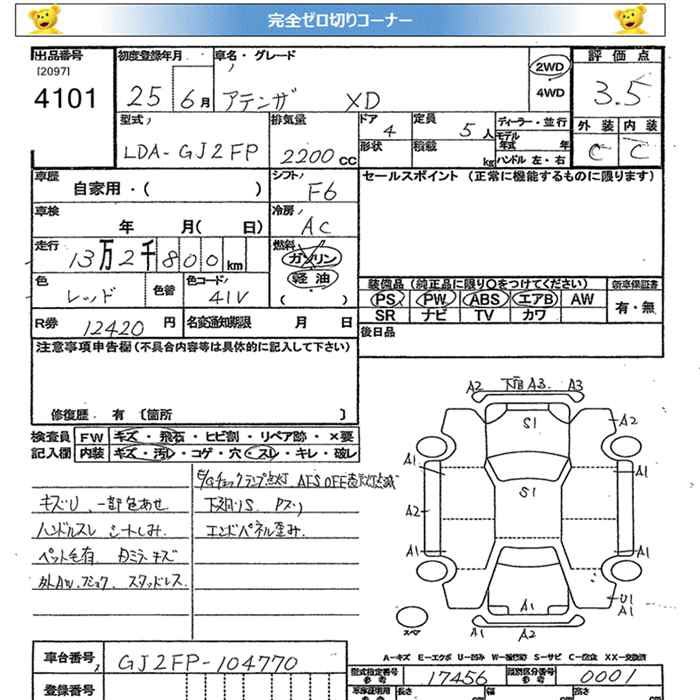 完全ゼロ切りコーナー
出品番号 初度登録年月 車名・グレード 2WD 評価点
[2097]
4101 25 6月 アテンザ XD 4WD 3.5
型式 排気量 ドア 4 定員 5人 ディーラー・並行 外装 内装
LDA-GJ2FP 2200cc 形状 積載 kg モデル年式 年 C C
ハンドル 左・右
車歴 シフト セールスポイント(正常に機能するものに限ります)
自家用・( ) F6
車検 冷房
年 月( 日) AC
走行 燃料
13万2千800km ガソリン
軽油
( )
色 色替 色コード 装備品(純正品に限り○をつけてください) 新車保証書
レッド 41V PS PW ABS エアB AW 有・無
SR ナビ TV カワ
R券 12420円 名変通知期限 月 日 後日品
注意事項申告欄(不具合内容等は具体的に記入して下さい)
修復歴 有〔箇所 〕
検査員 FW キズ・飛石・ヒビ割・リペア跡・×要
記入欄 内装 キズ・汚レ・コゲ・穴・スレ・キレ・破レ
E/Gチェックランプ点灯 AFS OFF
キズU 一部色あせ
ハンドルスレ シートしみ
ペット毛有
スタッドレス
エンドパネル歪み
A2 下凹 A3 A3
S1 A2
A1 A1
S1
A2
A1 A1
A1 U1
A1
A2 A2
スペア
A-キズ E-エクボ U-凹み W-補修跡 S-サビ C-腐食 XX-交換済
車台番号 GJ2FP-104770 型式指定番号 参考 17456 類別区分番号 参考 0001
登録番号 長さ 幅 高さ